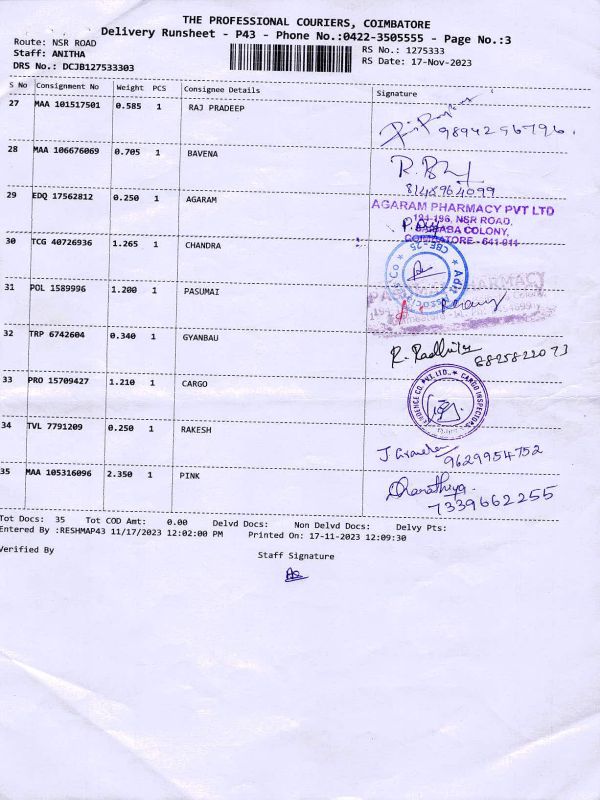 THE PROFESSIONAL COURIERS, COIMBATORE
Delivery Runsheet - P43 - Phone No.:0422-3505555 - Page No.:3
Route: NSR ROAD
RS No.: 1275333
Staff: ANITHA
RS Date: 17-Nov-2023
DRS No.: DCJB127533303
S No Consignment No Weight PCS Consignee Details Signature
27 MAA 101517501 0.585 1 RAJ PRADEEP
9894256796.
28 MAA 106676069 0.705 1 BAVENA
8148964099
29 EDQ 17562812 0.250 1 AGARAM
AGARAM PHARMACY PVT LTD
194-196, NSR ROAD,
SAIBABA COLONY,
COIMBATORE - 641 011
30 TCG 40726936 1.265 1 CHANDRA
CBE-25
31 POL 1589996 1.200 1 PASUMAI
32 TRP 6742604 0.340 1 GYANBAU
8825822073
33 PRO 15709427 1.210 1 CARGO
CARGO INSPECTION
34 TVL 7791209 0.250 1 RAKESH
9629954752
35 MAA 105316096 2.350 1 PINK
7339662255
Tot Docs: 35 Tot COD Amt: 0.00 Delvd Docs: Non Delvd Docs: Delvy Pts:
Entered By :RESHMAP43 11/17/2023 12:02:00 PM Printed On: 17-11-2023 12:09:30
Verified By
Staff Signature